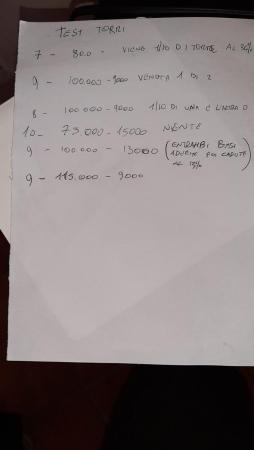 TEST TORRI
7 - 800 - VIENE 1/10 DI TORRE AL 36%
9 - 100.000 - 9000 VENUTA 1 DI 2
8 - 100.000 - 9000 1/10 DI UNA E L'ALTRA 0
10 - 75.000 - 15000 NIENTE
9 - 100.000 - 13000 (ENTRAMBI BASI
POI CADUTE
AL 13%)
9 - 115.000 - 9000